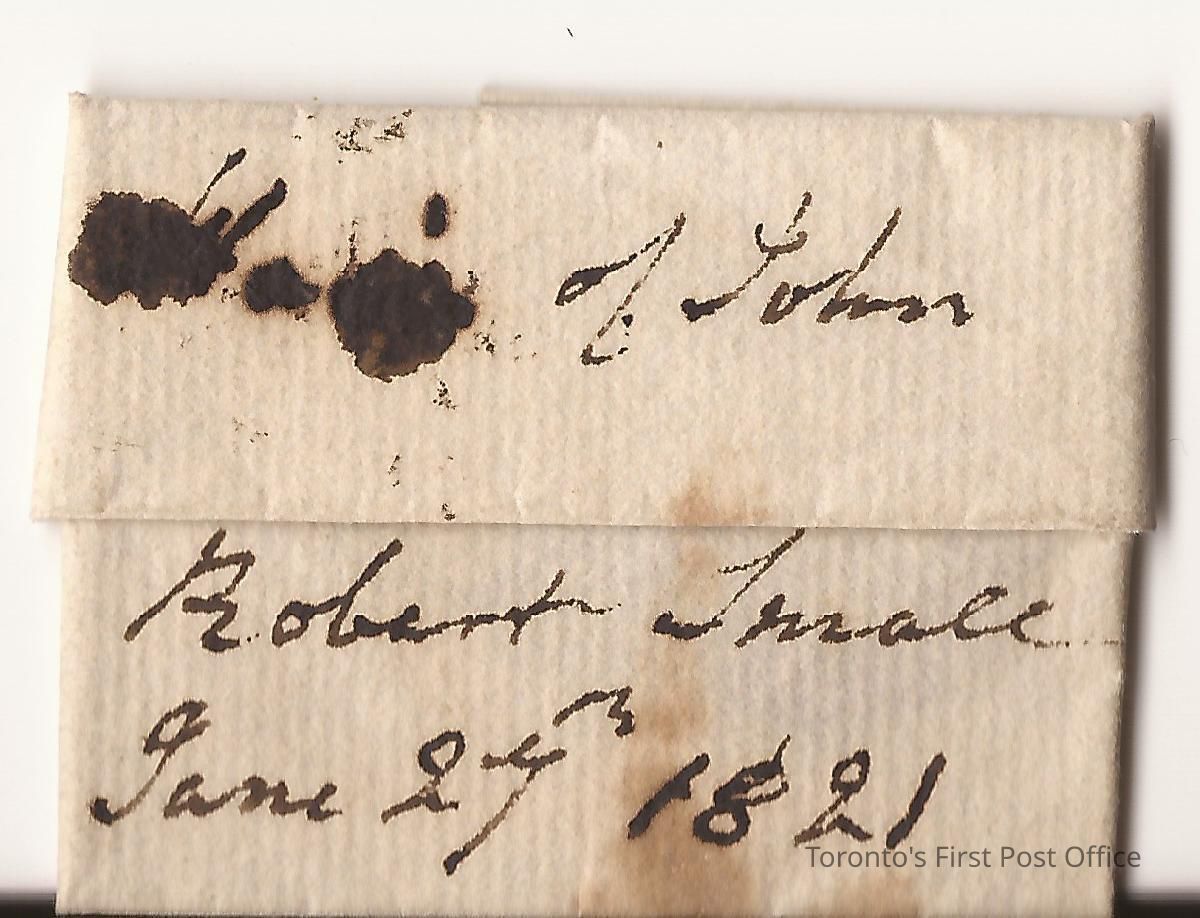 of John
Robert Small
June 27th 1821
Toronto's First Post Office